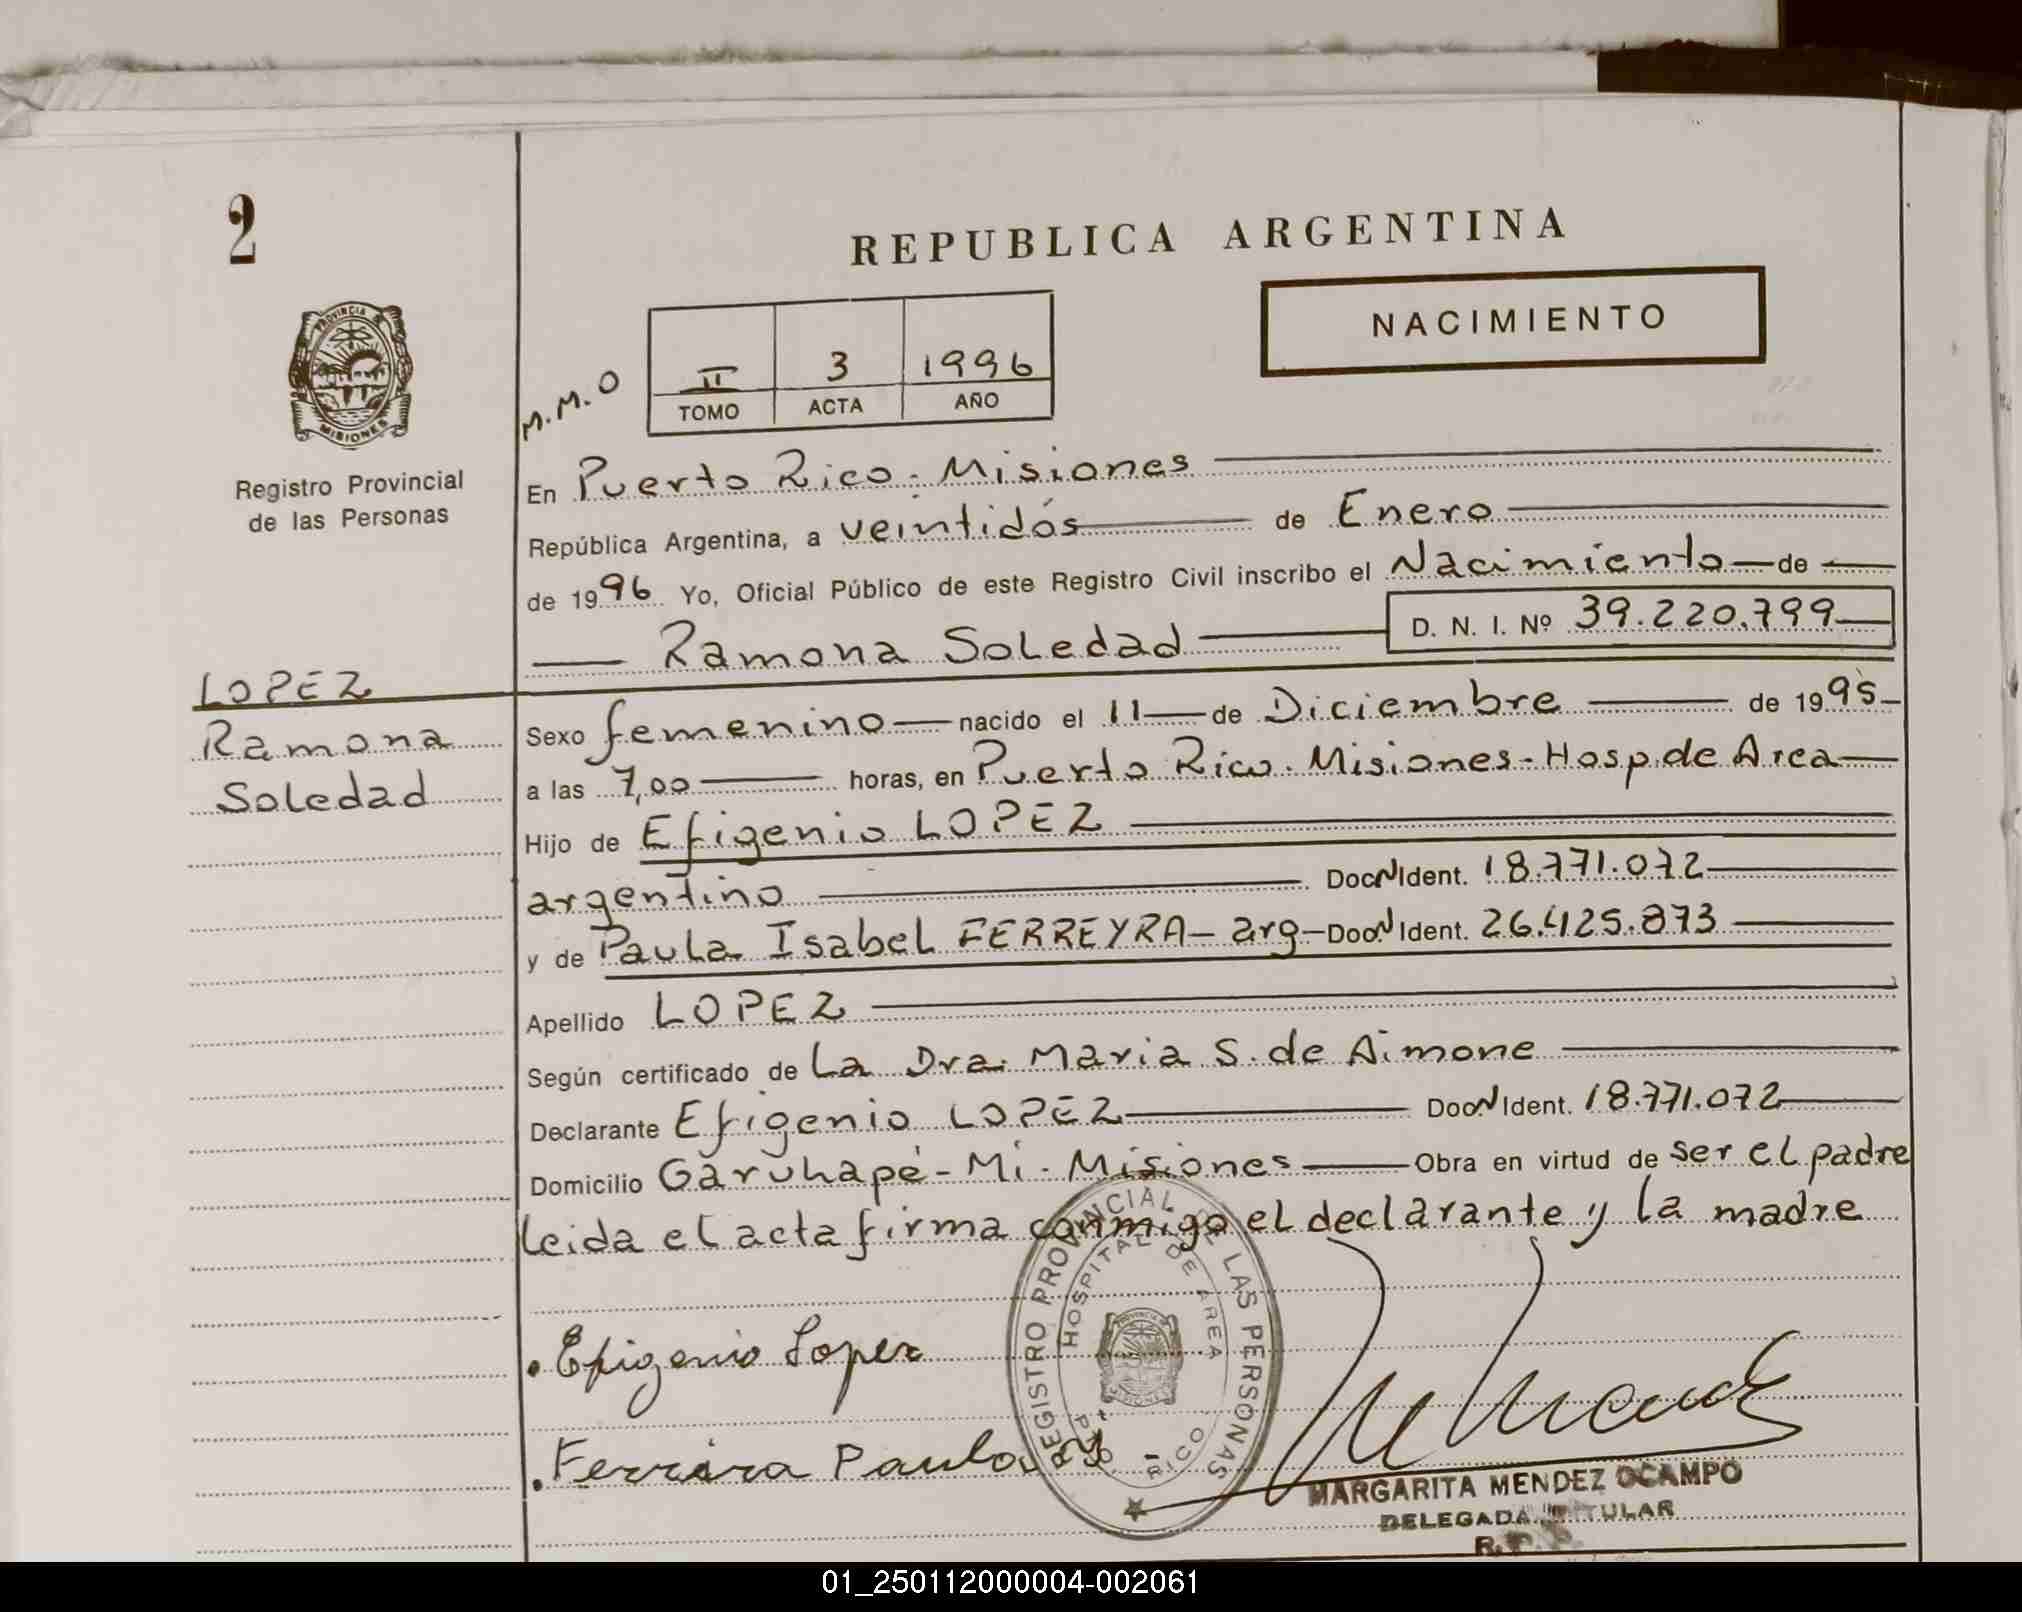 2
REPUBLICA ARGENTINA
NACIMIENTO
PROVINCIA DE
MISIONES
M.M.O
II 3 1996
TOMO ACTA AÑO
Registro Provincial
de las Personas
En Puerto Rico. Misiones
República Argentina, a veintidós de Enero
de 1996 Yo, Oficial Público de este Registro Civil inscribo el Nacimiento de
Ramona Soledad D. N. I. Nº 39.220.799
LOPEZ
Ramona
Soledad
Sexo femenino nacido el 11 de Diciembre de 1995
a las 7,00 horas, en Puerto Rico. Misiones - Hosp. de Area
Hijo de Efigenio LOPEZ
argentino Doc N Ident. 18.771.072
y de Paula Isabel FERREYRA - arg - Doc. N Ident. 26.425.873
Apellido LOPEZ
Según certificado de La Dra. Maria S. de Aimone
Declarante Efigenio LOPEZ Doc N Ident. 18.771.072
Domicilio Garuhapé - Mi - Misiones Obra en virtud de ser el padre
leida el acta firma conmigo el declarante y la madre
REGISTRO PROVINCIAL DE LAS PERSONAS
HOSPITAL DE AREA
PTO. RICO
Efigenio Lopez
Ferreira Paula
MARGARITA MENDEZ OCAMPO
DELEGADA TITULAR
01_250112000004-002061